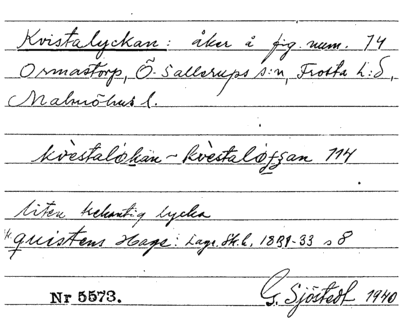 Kvistalyckan: åker å fig. num. 74
Ormastorp, Ö. Sallerups s:n, Frosta h:d,
Malmöhus l.
kvèstalókän - kvèstalóggan 114
liten trekantig lycka
quistens Hage: Lagr. Sk. b. 1831-33 s 8
Nr 5573. G. Sjöstedt 1940